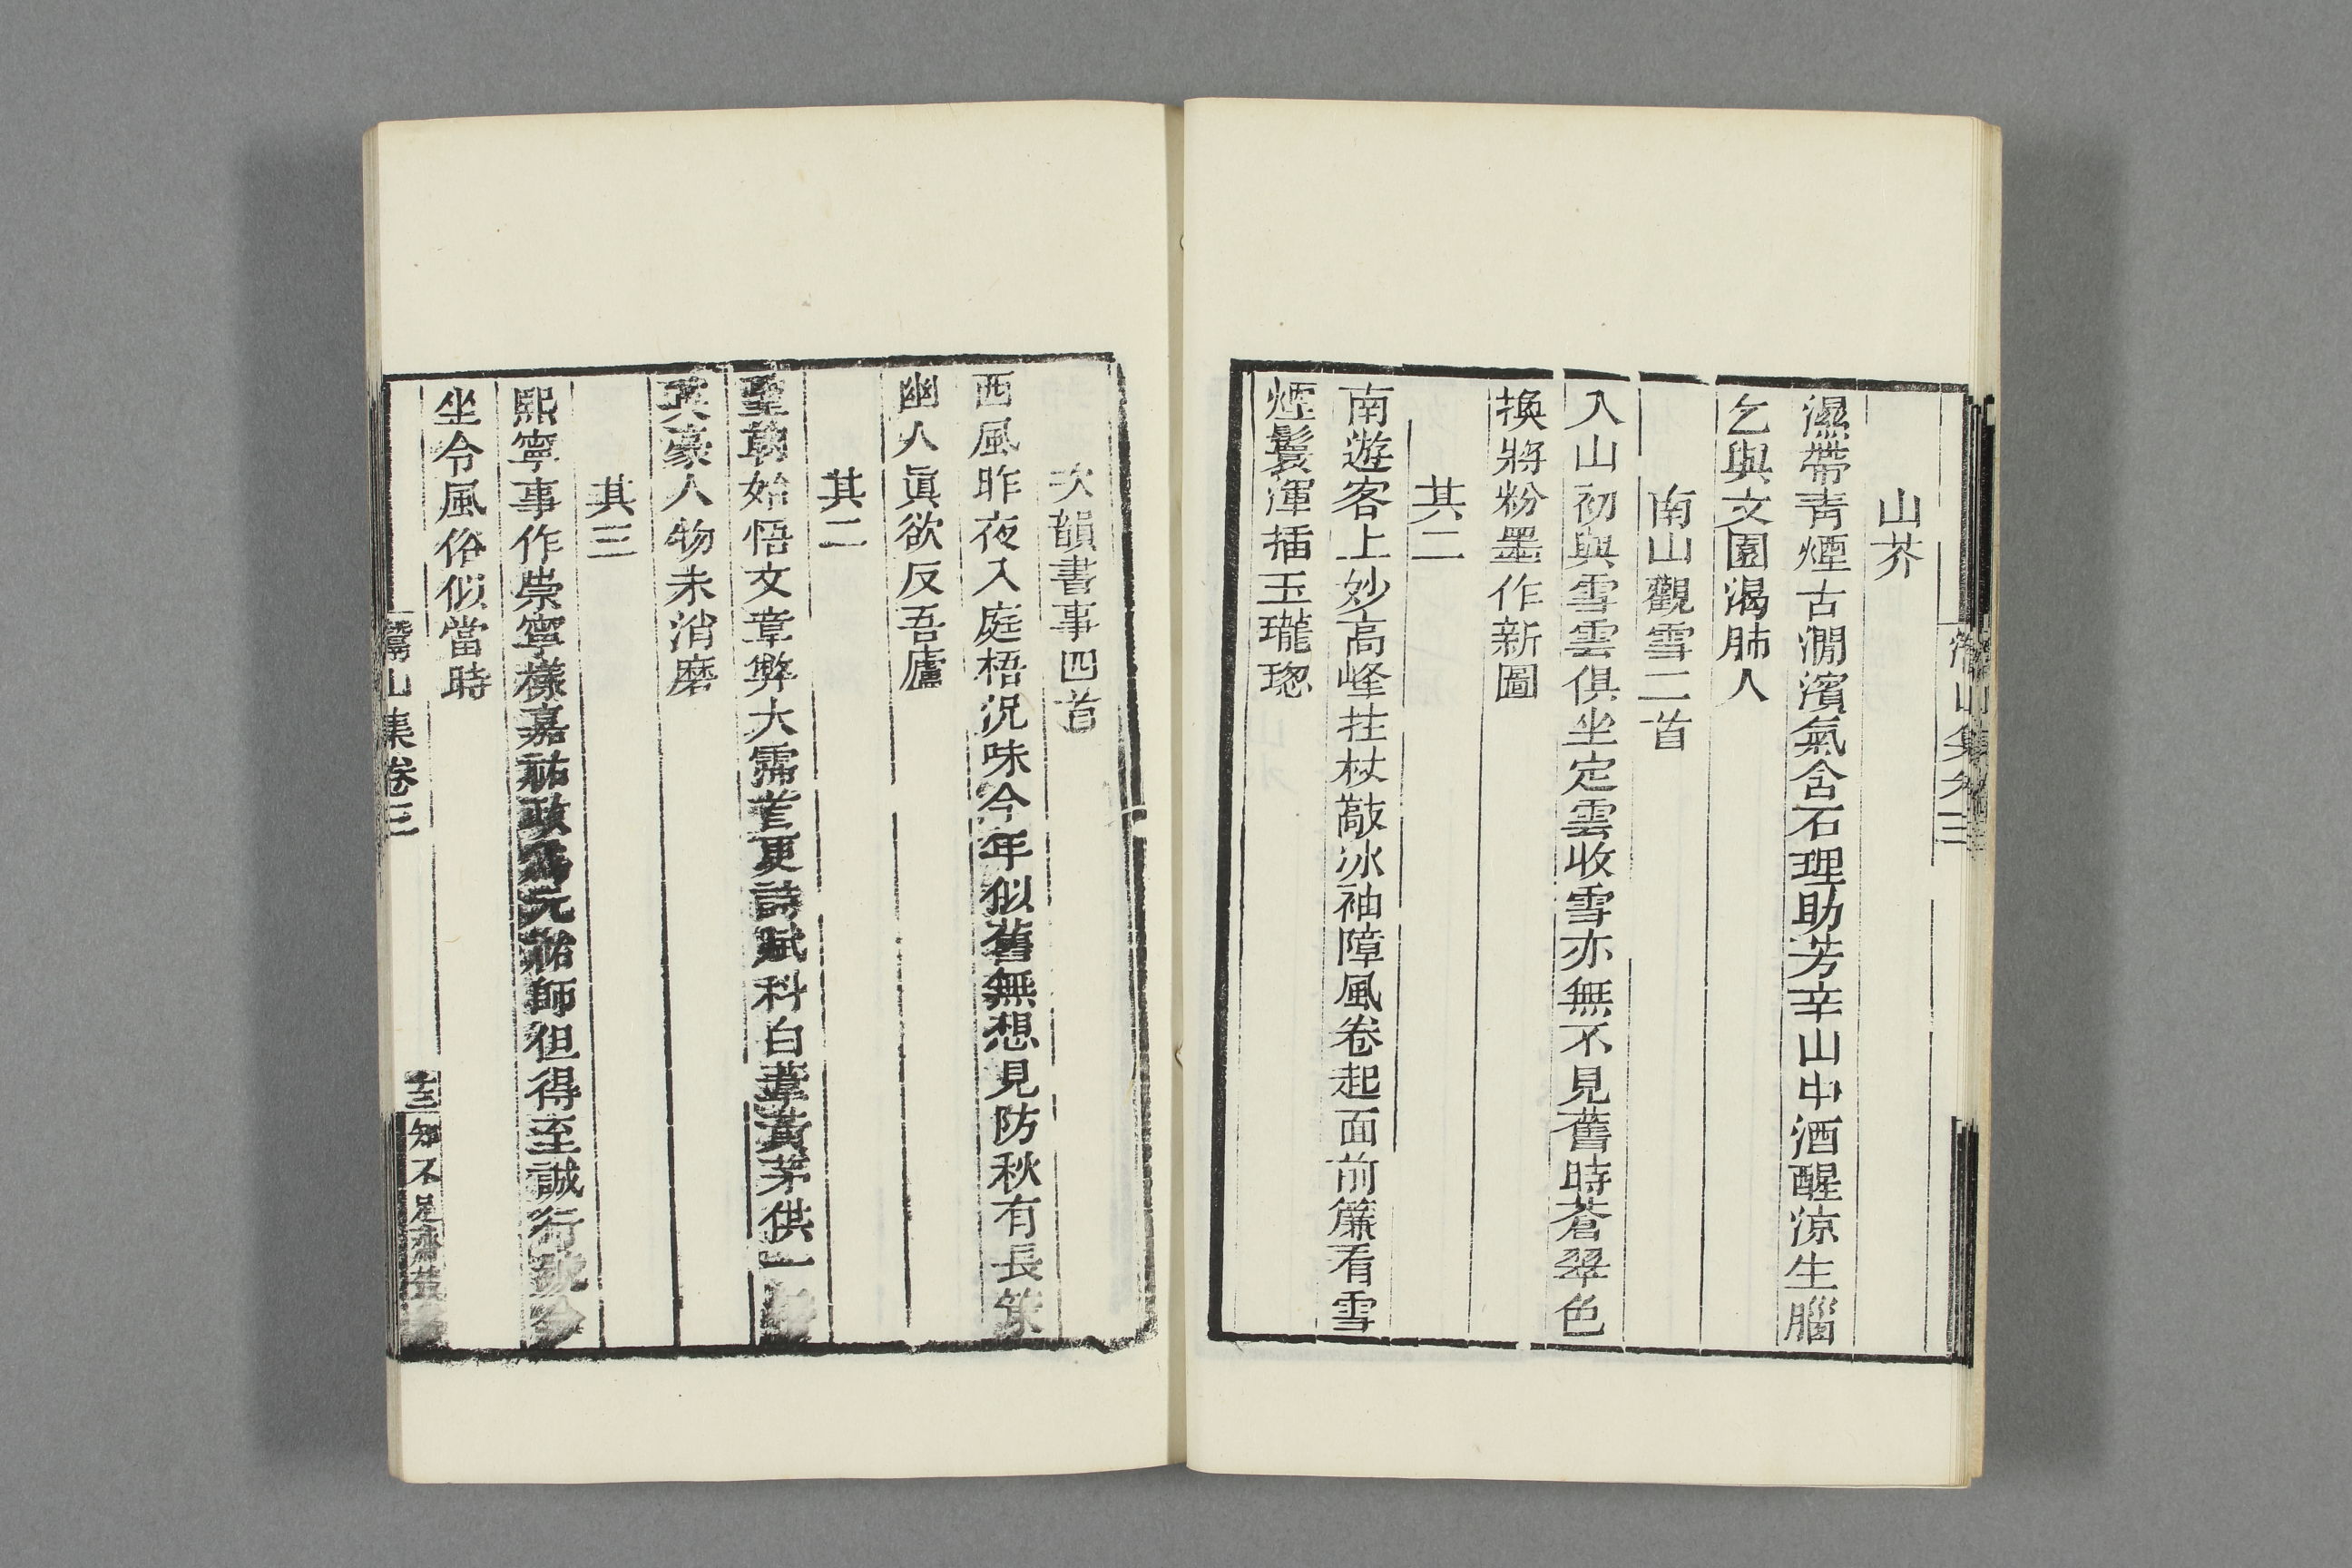 山芥
濕帶青煙古澗濱氣含石理助芳辛山中酒醒涼生腦
乞與文園渴肺人
南山觀雪二首
入山初與雪雲俱坐定雲收雪亦無不見舊時蒼翠色
換將粉墨作新圖
其二
南遊客上妙高峰拄杖敲冰袖障風卷起面前簾看雪
煙鬟渾插玉瓏璁
次韻書事四首
西風昨夜入庭梧況味今年似舊無想見防秋有長策
幽人眞欲反吾廬
其二
聖朝始悟文章弊大霈首更詩賦科白葦黃茅供一
英豪人物未消磨
其三
熙寧事作崇寧樣嘉祐政爲元祐師但得至誠行
坐令風俗似當時
灊山集卷三
十三
知不足齋叢